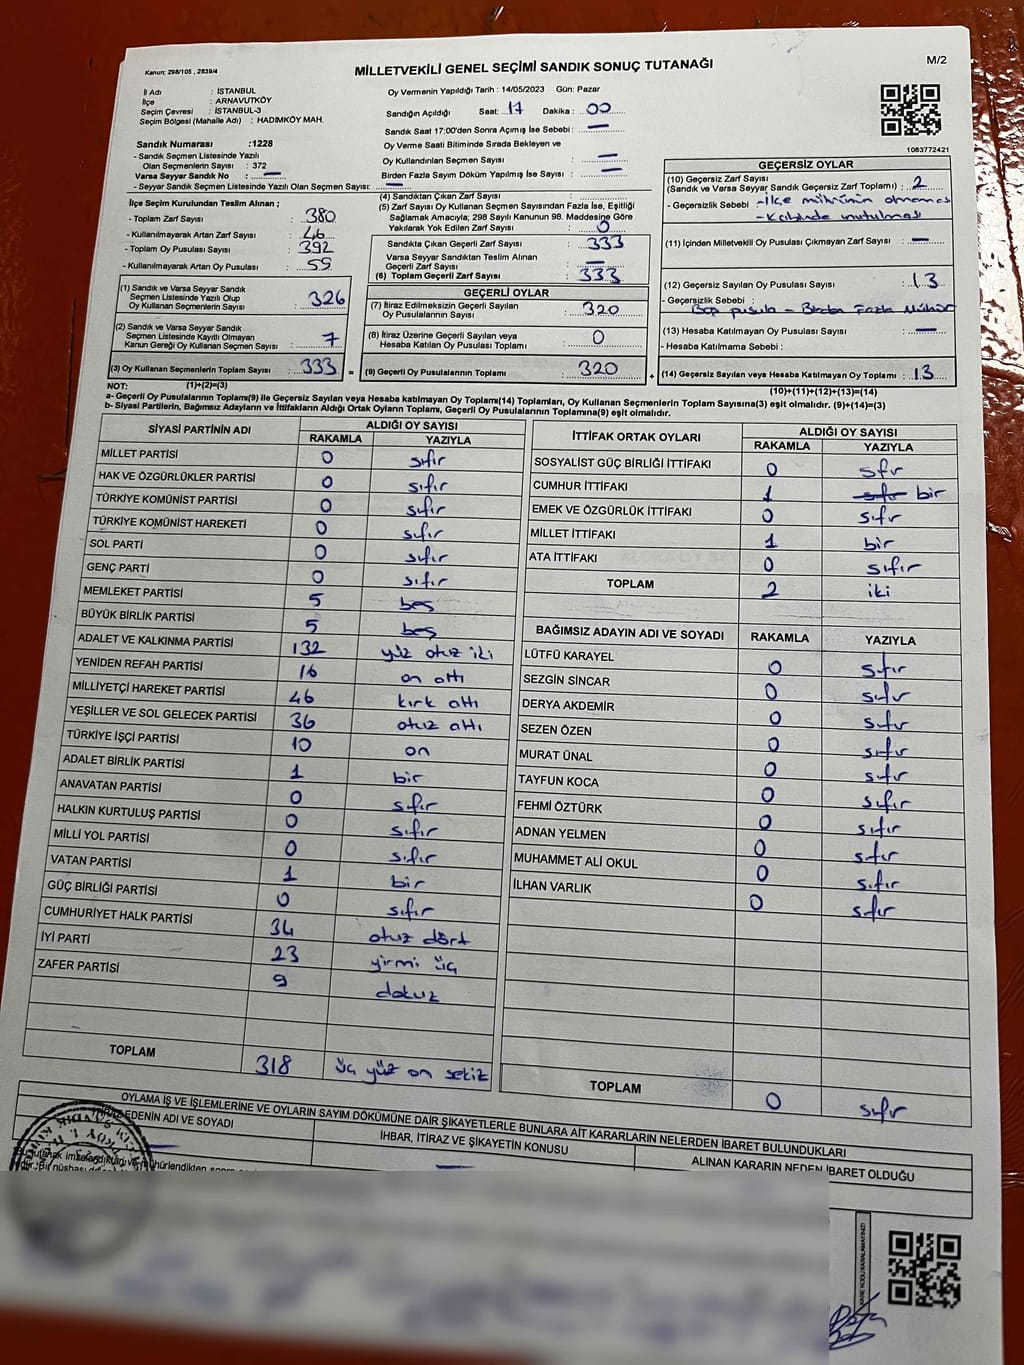 Kanun; 298/105 , 2839/4
MİLLETVEKİLİ GENEL SEÇİMİ SANDIK SONUÇ TUTANAĞI
M/2
İl Adı : İSTANBUL
İlçe : ARNAVUTKÖY
Seçim Çevresi : İSTANBUL-3
Seçim Bölgesi (Mahalle Adı) : HADIMKÖY MAH.
Sandık Numarası :1228
- Sandık Seçmen Listesinde Yazılı
Olan Seçmenlerin Sayısı : 372
Varsa Seyyar Sandık No : —
- Seyyar Sandık Seçmen Listesinde Yazılı Olan Seçmen Sayısı: —
Oy Vermenin Yapıldığı Tarih : 14/05/2023 Gün: Pazar
Sandığın Açıldığı Saat: 17 Dakika : 00
Sandık Saat 17:00'den Sonra Açımış İse Sebebi : —
Oy Verme Saati Bitiminde Sırada Bekleyen ve
Oy Kullandırılan Seçmen Sayısı : —
Birden Fazla Sayım Döküm Yapılmış İse Sayısı : —
1083772421
İlçe Seçim Kurulundan Teslim Alınan ;
- Toplam Zarf Sayısı : 380
- Kullanılmayarak Artan Zarf Sayısı : 46
- Toplam Oy Pusulası Sayısı : 392
- Kullanılmayarak Artan Oy Pusulası : 59
(1) Sandık ve Varsa Seyyar Sandık
Seçmen Listesinde Yazılı Olup
Oy Kullanan Seçmenlerin Sayısı : 326
(2) Sandık ve Varsa Seyyar Sandık
Seçmen Listesinde Kayıtlı Olmayan
Kanun Gereği Oy Kullanan Seçmen Sayısı : 7
(3) Oy Kullanan Seçmenlerin Toplam Sayısı : 333 =
(4) Sandıktan Çıkan Zarf Sayısı :
(5) Zarf Sayısı Oy Kullanan Seçmen Sayısından Fazla İse, Eşitliği
Sağlamak Amacıyla; 298 Sayılı Kanunun 98. Maddesine Göre
Yakılarak Yok Edilen Zarf Sayısı : 0
Sandıkta Çıkan Geçerli Zarf Sayısı : 333
Varsa Seyyar Sandıktan Teslim Alınan
Geçerli Zarf Sayısı : —
(6) Toplam Geçerli Zarf Sayısı : 333
GEÇERLİ OYLAR
(7) İtiraz Edilmeksizin Geçerli Sayılan
Oy Pusulalarının Sayısı : 320
(8) İtiraz Üzerine Geçerli Sayılan veya
Hesaba Katılan Oy Pusulası Toplamı : 0
(9) Geçerli Oy Pusulalarının Toplamı : 320 +
GEÇERSİZ OYLAR
(10) Geçersiz Zarf Sayısı
(Sandık ve Varsa Seyyar Sandık Geçersiz Zarf Toplamı) : 2
- Geçersizlik Sebebi : - İlçe mührünün olmaması
- Kabinde unutulması
(11) İçinden Milletvekili Oy Pusulası Çıkmayan Zarf Sayısı : —
(12) Geçersiz Sayılan Oy Pusulası Sayısı : 13
- Geçersizlik Sebebi :
Boş pusula - Birden Fazla Mühür
(13) Hesaba Katılmayan Oy Pusulası Sayısı : —
- Hesaba Katılmama Sebebi :
(14) Geçersiz Sayılan veya Hesaba Katılmayan Oy Toplamı : 13
NOT: (1)+(2)=(3) (10)+(11)+(12)+(13)=(14)
a- Geçerli Oy Pusulalarının Toplamı(9) ile Geçersiz Sayılan veya Hesaba katılmayan Oy Toplamı(14) Toplamları, Oy Kullanan Seçmenlerin Toplam Sayısına(3) eşit olmalıdır. (9)+(14)=(3)
b- Siyasi Partilerin, Bağımsız Adayların ve İttifakların Aldığı Ortak Oyların Toplamı, Geçerli Oy Pusulalarının Toplamına(9) eşit olmalıdır.
SİYASİ PARTİNİN ADI ALDIĞI OY SAYISI
RAKAMLA YAZIYLA
MİLLET PARTİSİ 0 sıfır
HAK VE ÖZGÜRLÜKLER PARTİSİ 0 sıfır
TÜRKİYE KOMÜNİST PARTİSİ 0 sıfır
TÜRKİYE KOMÜNİST HAREKETİ 0 sıfır
SOL PARTİ 0 sıfır
GENÇ PARTİ 0 sıfır
MEMLEKET PARTİSİ 5 beş
BÜYÜK BİRLİK PARTİSİ 5 beş
ADALET VE KALKINMA PARTİSİ 132 yüz otuz iki
YENİDEN REFAH PARTİSİ 16 on altı
MİLLİYETÇİ HAREKET PARTİSİ 46 kırk altı
YEŞİLLER VE SOL GELECEK PARTİSİ 36 otuz altı
TÜRKİYE İŞÇİ PARTİSİ 10 on
ADALET BİRLİK PARTİSİ 1 bir
ANAVATAN PARTİSİ 0 sıfır
HALKIN KURTULUŞ PARTİSİ 0 sıfır
MİLLİ YOL PARTİSİ 0 sıfır
VATAN PARTİSİ 1 bir
GÜÇ BİRLİĞİ PARTİSİ 0 sıfır
CUMHURİYET HALK PARTİSİ 34 otuz dört
İYİ PARTİ 23 yirmi üç
ZAFER PARTİSİ 9 dokuz
TOPLAM 318 üç yüz on sekiz
İTTİFAK ORTAK OYLARI ALDIĞI OY SAYISI
RAKAMLA YAZIYLA
SOSYALİST GÜÇ BİRLİĞİ İTTİFAKI 0 sıfır
CUMHUR İTTİFAKI 1 sıfır bir
EMEK VE ÖZGÜRLÜK İTTİFAKI 0 sıfır
MİLLET İTTİFAKI 1 bir
ATA İTTİFAKI 0 sıfır
TOPLAM 2 iki
BAĞIMSIZ ADAYIN ADI VE SOYADI RAKAMLA YAZIYLA
LÜTFÜ KARAYEL 0 sıfır
SEZGİN SİNCAR 0 sıfır
DERYA AKDEMİR 0 sıfır
SEZEN ÖZEN 0 sıfır
MURAT ÜNAL 0 sıfır
TAYFUN KOCA 0 sıfır
FEHMİ ÖZTÜRK 0 sıfır
ADNAN YELMEN 0 sıfır
MUHAMMET ALİ OKUL 0 sıfır
İLHAN VARLIK 0 sıfır
TOPLAM 0 sıfır
OYLAMA İŞ VE İŞLEMLERİNE VE OYLARIN SAYIM DÖKÜMÜNE DAİR ŞİKAYETLERLE BUNLARA AİT KARARLARIN NELERDEN İBARET BULUNDUKLARI
EDENİN ADI VE SOYADI İHBAR, İTİRAZ VE ŞİKAYETİN KONUSU ALINAN KARARIN NEDEN İBARET OLDUĞU
KARE KODU KARALAMAYINIZ!